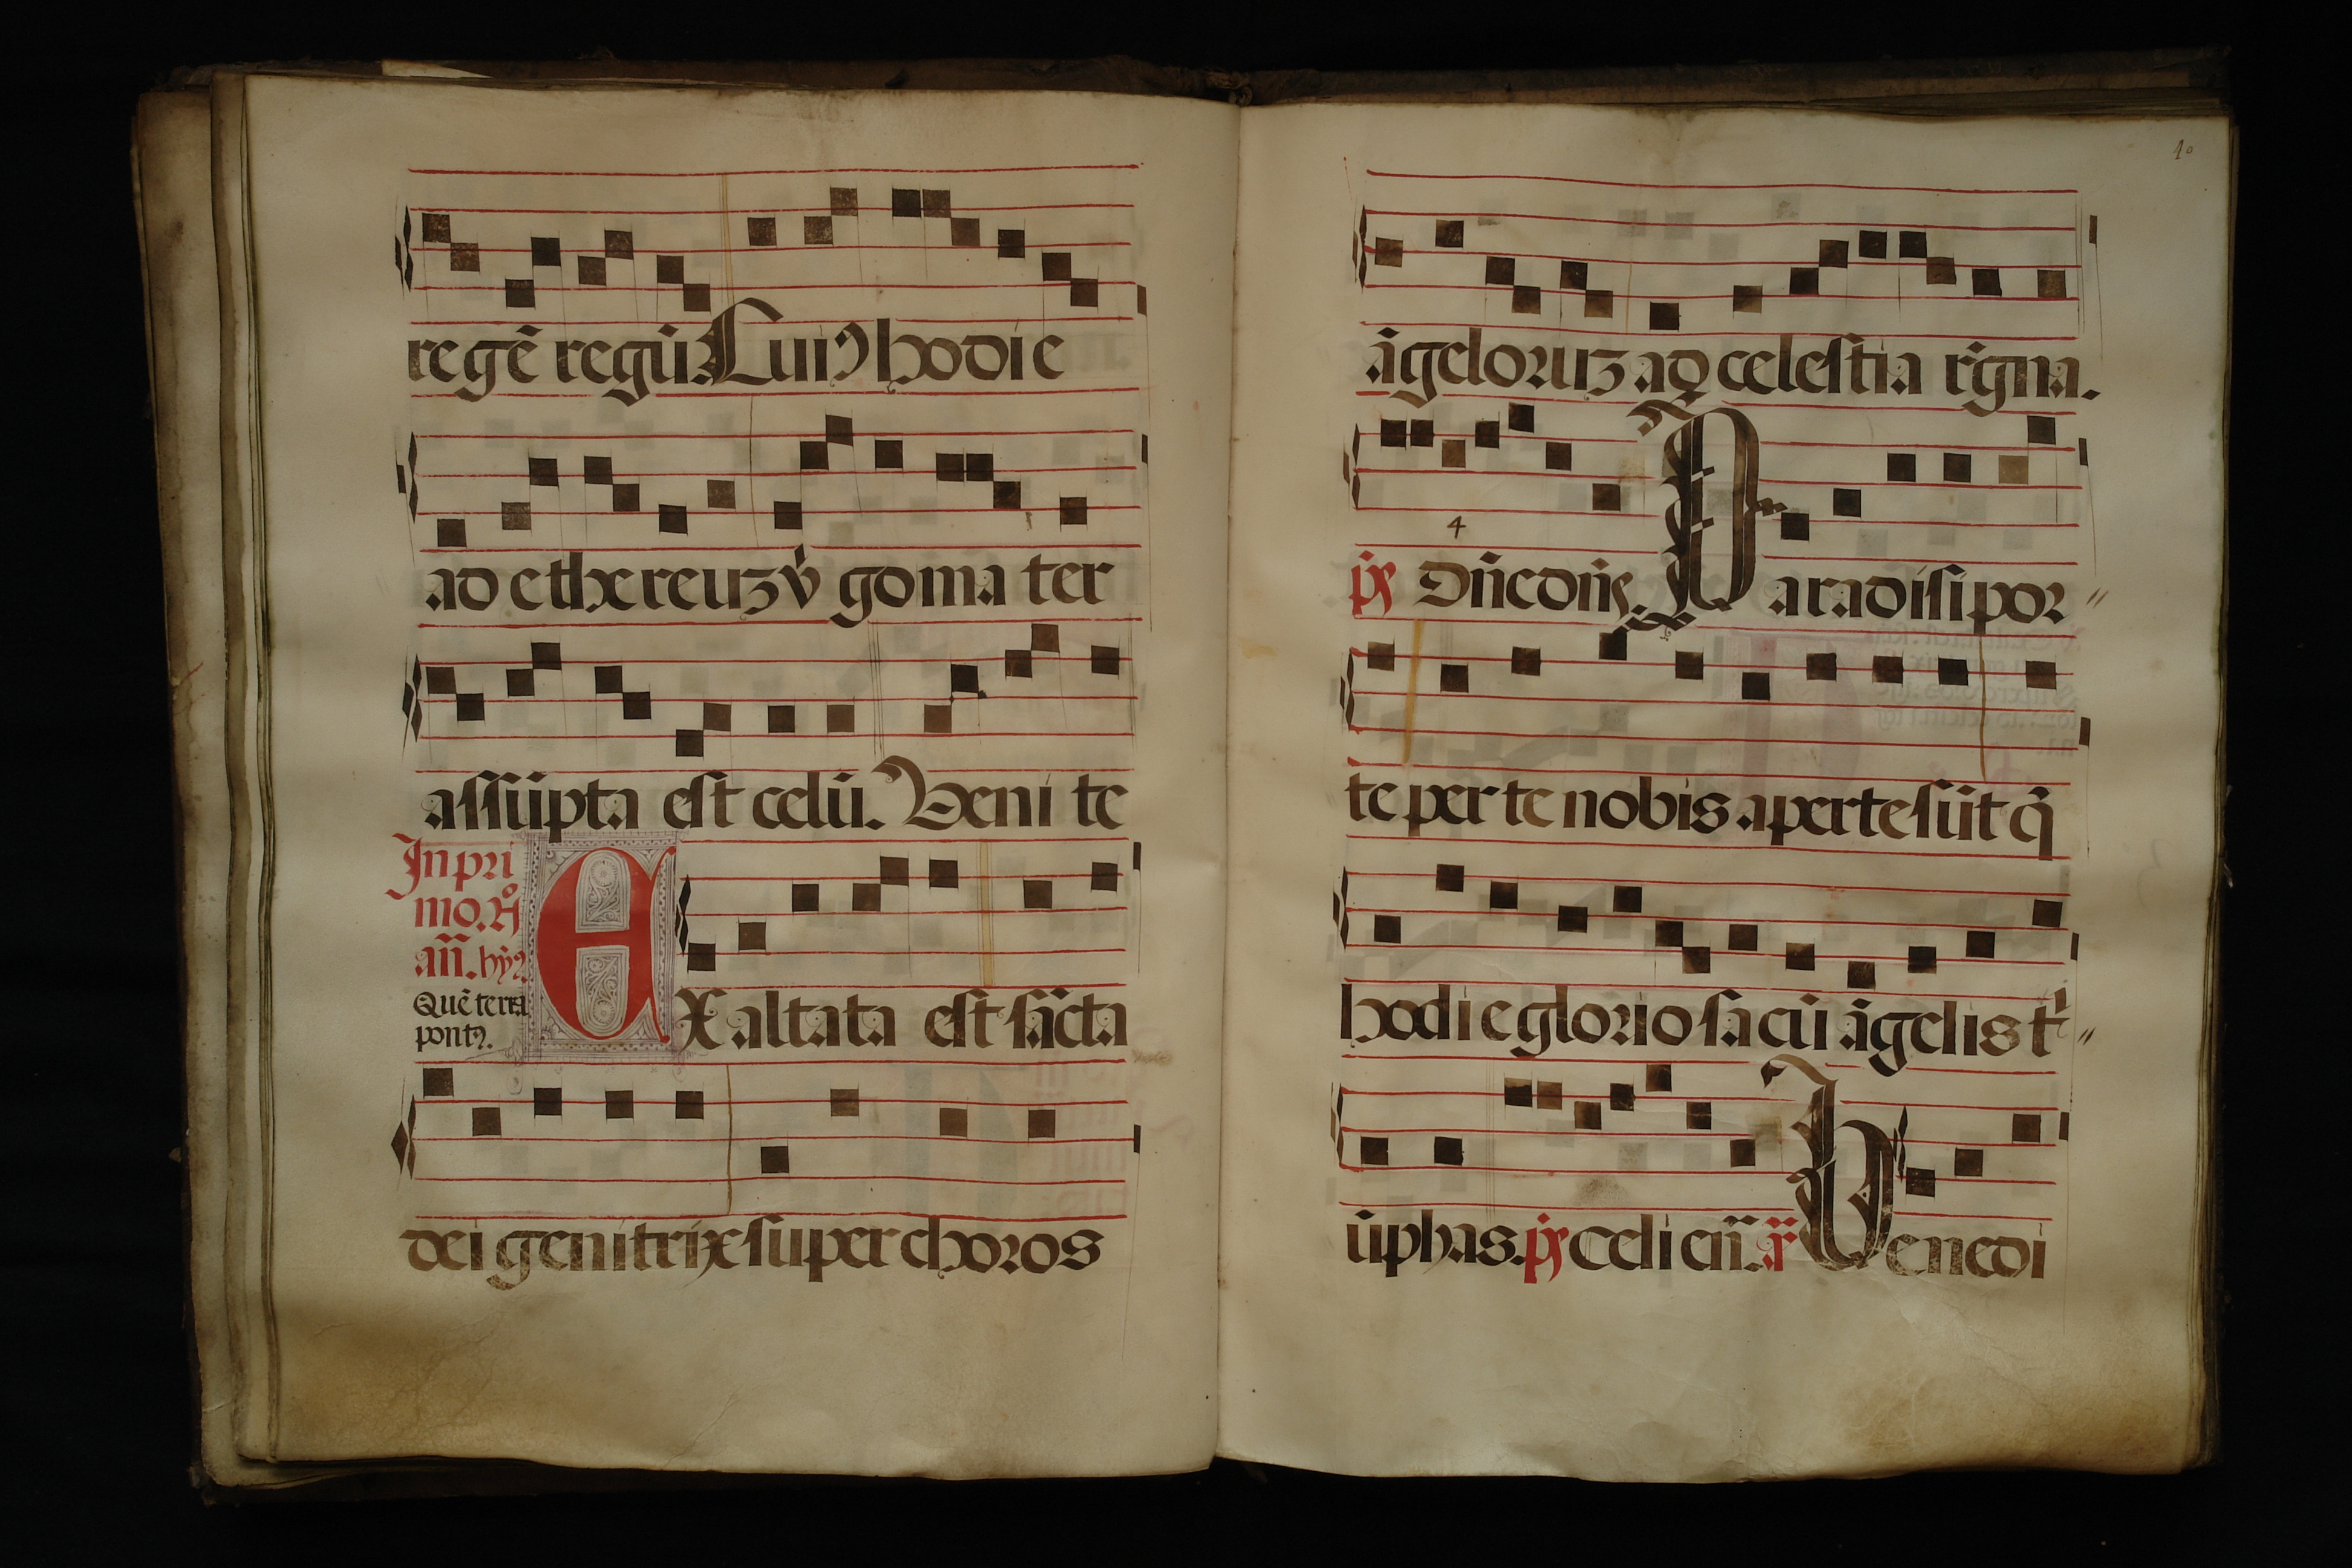 regē regū. Cuiꝰ hodie
ad ethereuz v̇go mater
assūpta est celū. Venite
In pri
mo. nº
añ. hyꝰ
Quē terra
pontꝰ.
EXaltata est sācta
dei genitrix super choros
40
āgeloruz ad celestia r̄gna.
4
pͥs Dñe dñs. Paradisi por〃
te per te nobis aperte sūt q̄
hodie gloriosa cū āgelis tͥ〃
ūphas. pͥs Celi eñ. ñ Benedi